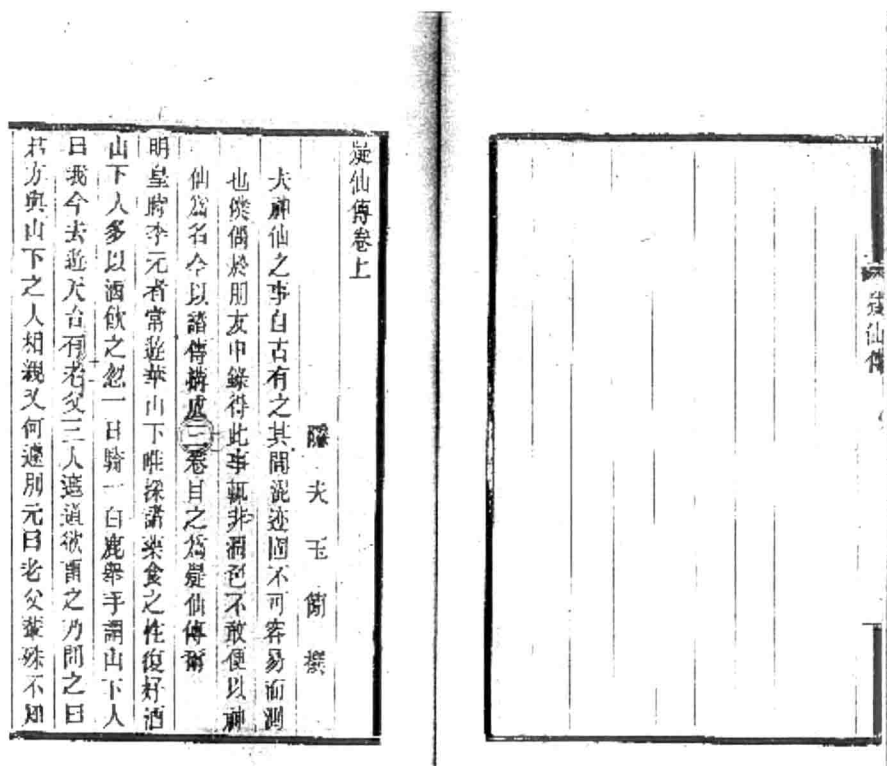 疑仙傳
疑仙傳卷上
隱夫玉簡撰
夫神仙之事自古有之其間混迹固不可容易而測
也僕偶於朋友中錄得此事輒非潤色不敢便以神
仙爲名今以諸傳搆成三卷目之爲疑仙傳爾
明皇時李元者常遊華山下唯採諸藥食之性復好酒
山下人多以酒飲之忽一日騎一白鹿舉手謂山下人
曰我今去遊天台有老父三人遮道欲留之乃問之曰
君方與山下之人相親又何遽別元曰老父輩殊不知